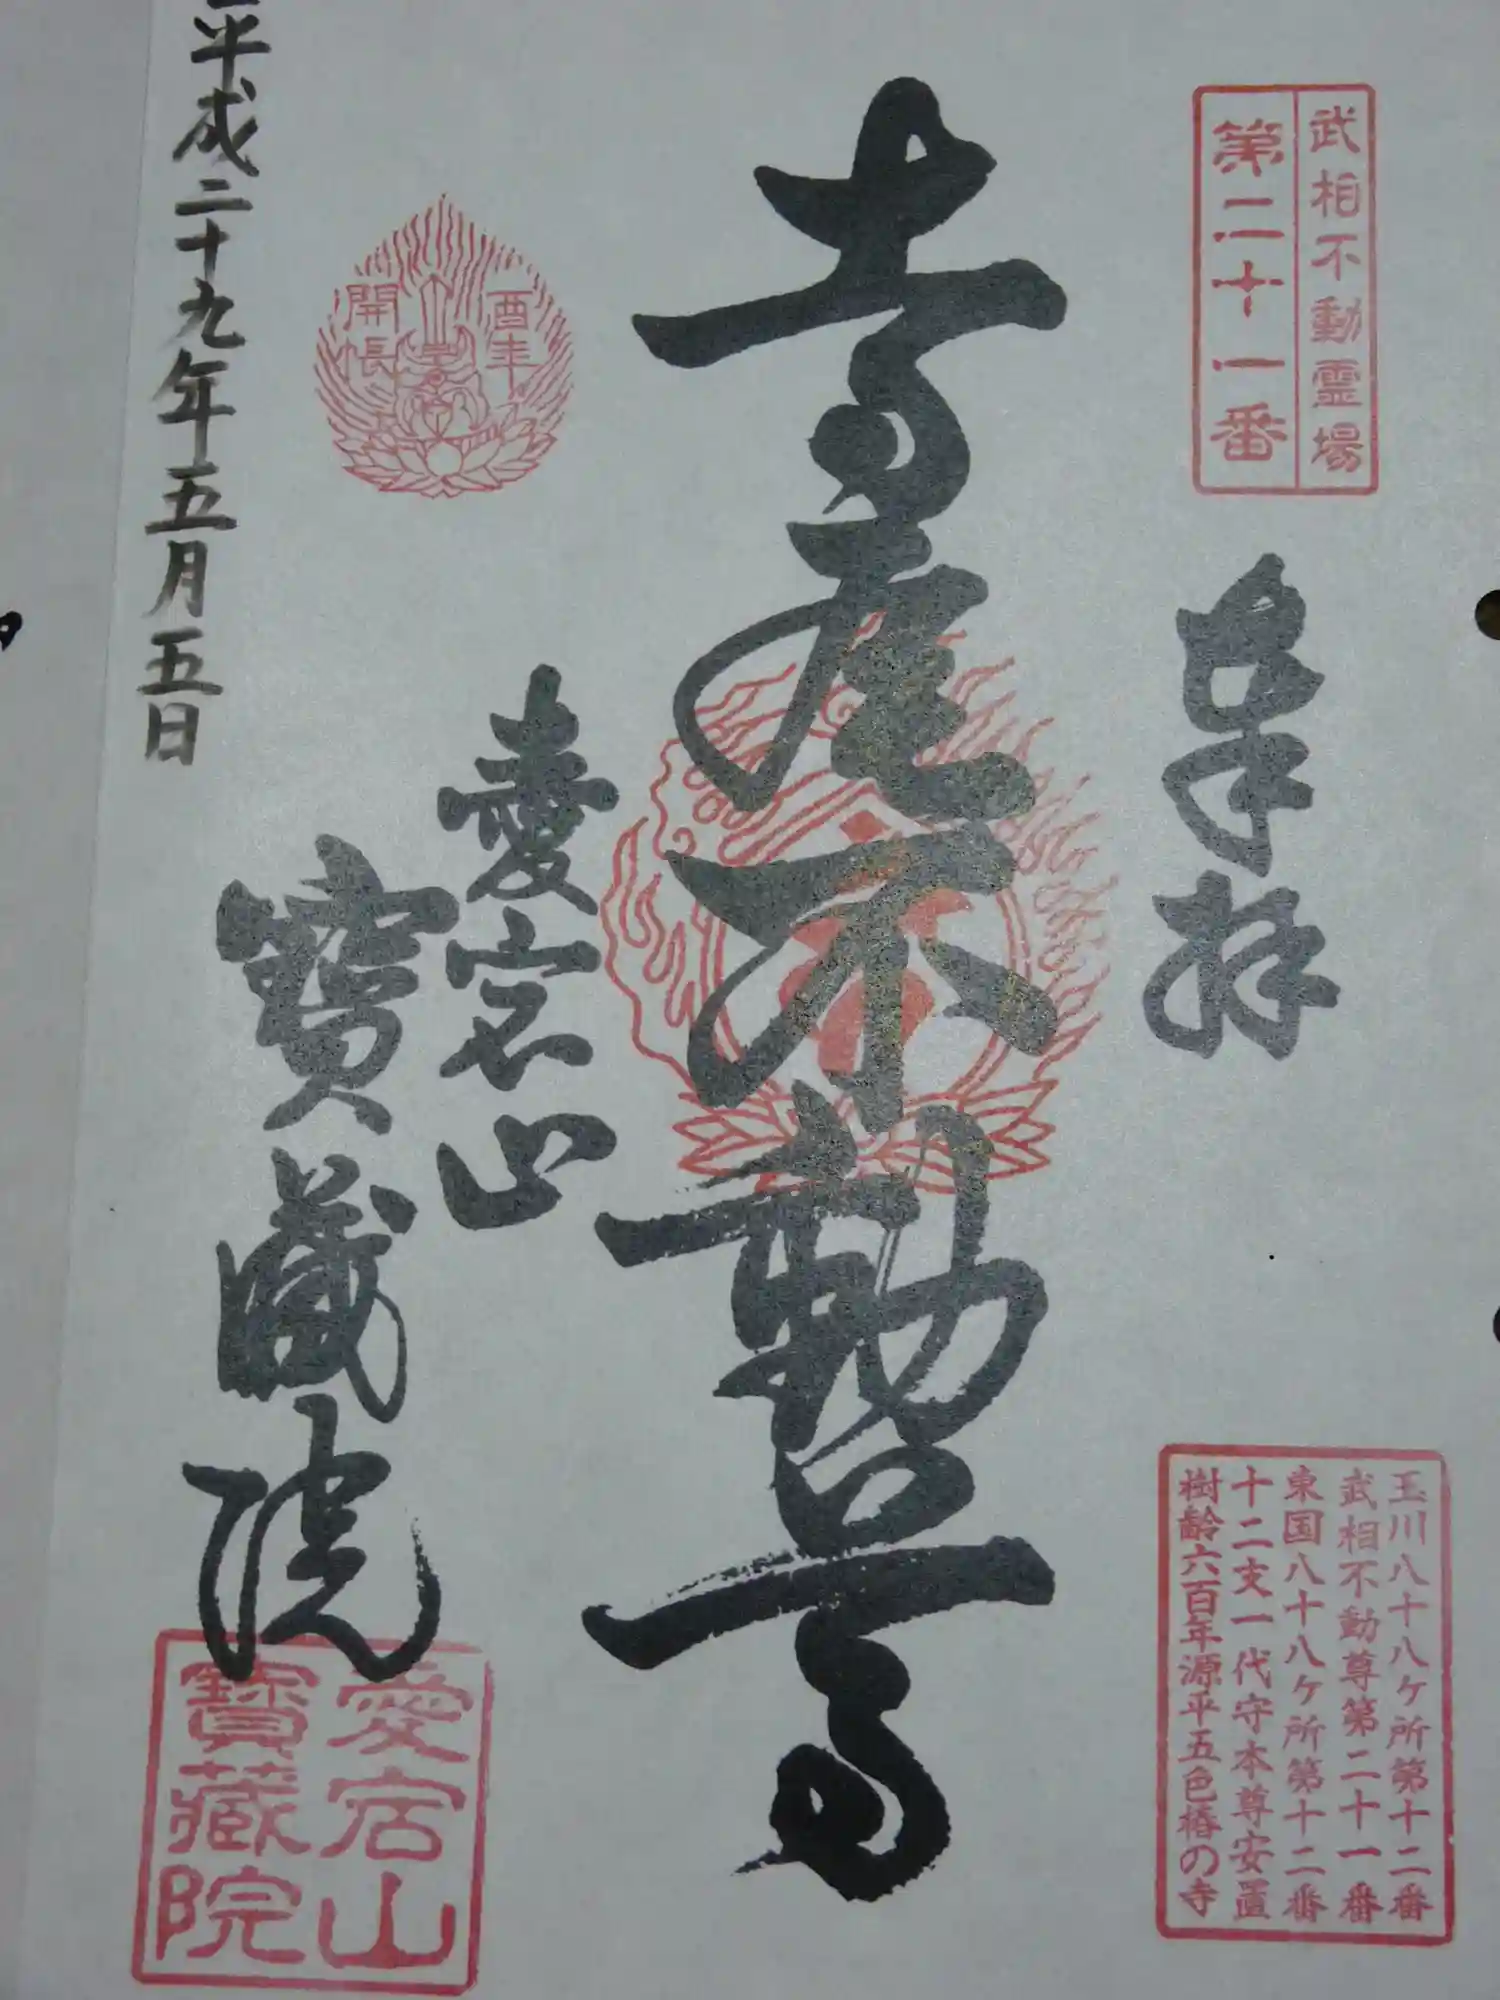 武相不動霊場
第二十一番
奉拝
玉川八十八ケ所第十二番
武相不動尊第二十一番
東国八十八ケ所第十二番
十二支一代守本尊安置
樹齢六百年源平五色椿の寺
不動尊
酉年
開帳
愛宕山
寶蔵院
愛宕山
寶蔵院
平成二十九年五月五日